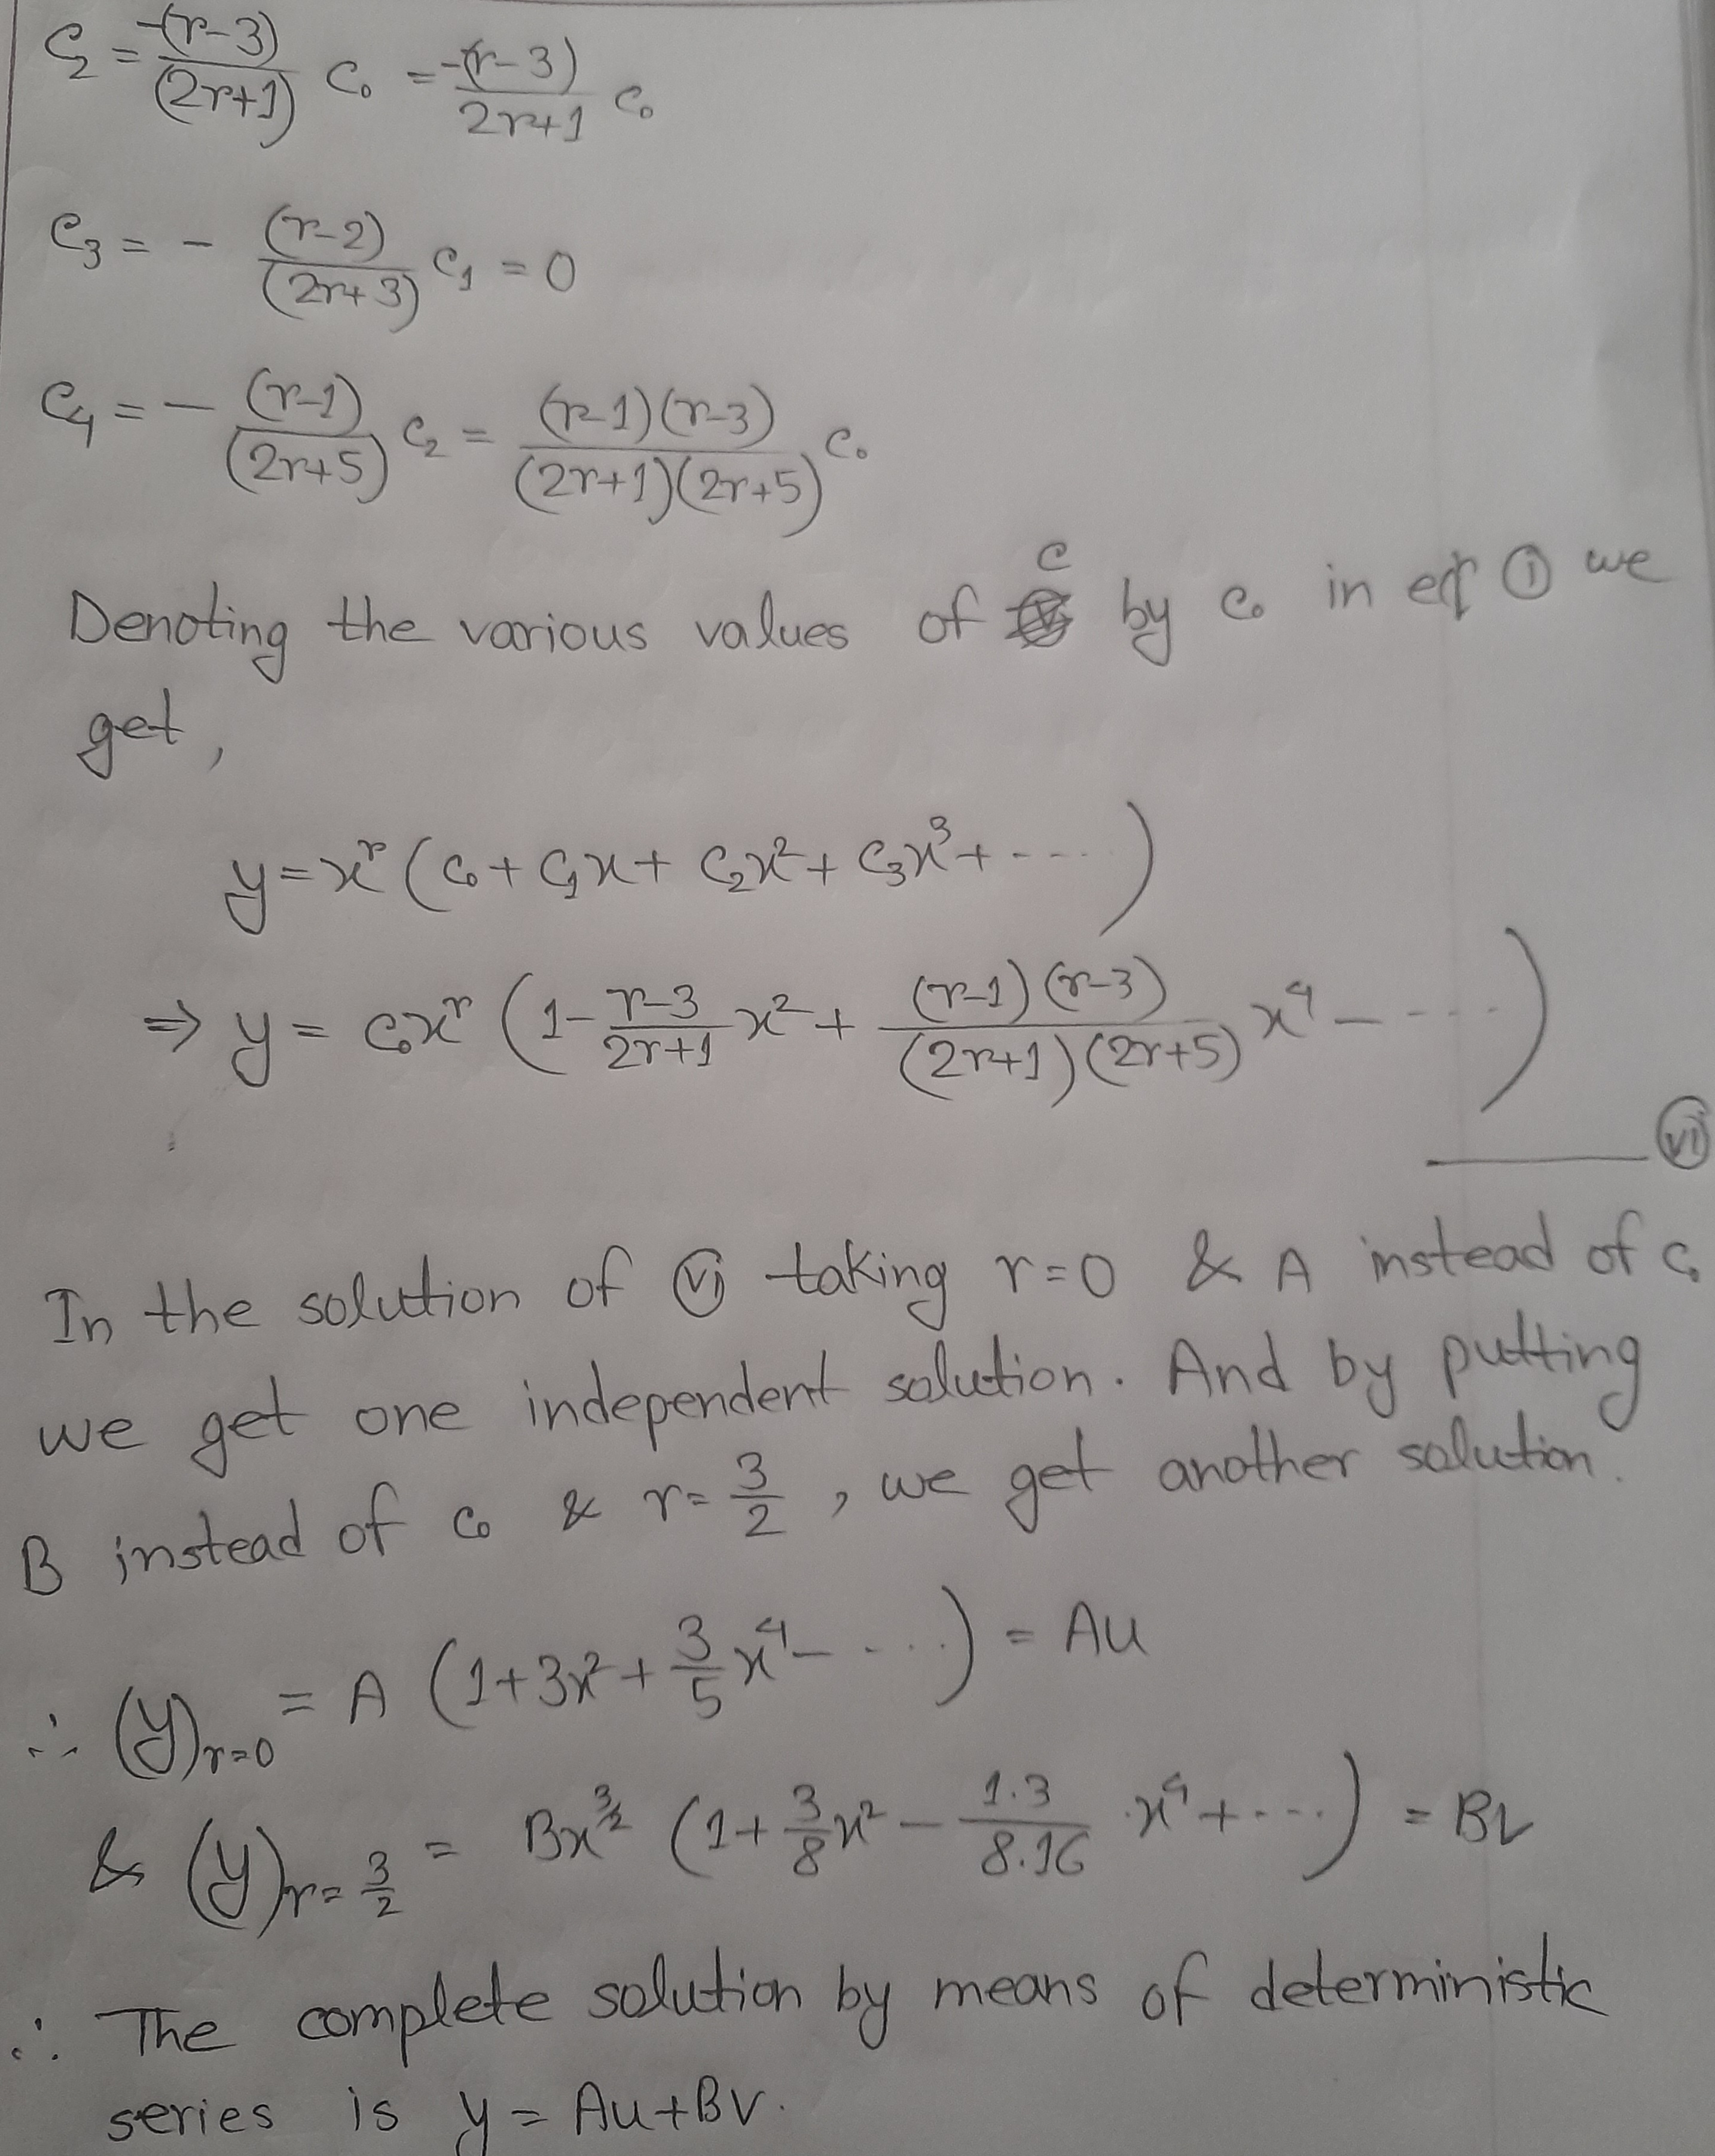 C₂ = -(r-3)/(2r+1) C₀ = -(r-3)/2r+1 C₀
C₃ = - (r-2)/(2r+3) C₁ = 0
C₄ = - (r-1)/(2r+5) C₂ = (r-1)(r-3)/(2r+1)(2r+5) C₀
Denoting the various values of C by C₀ in eq ⓘ we
get,
y = xʳ (C₀ + C₁x + C₂x² + C₃x³ + ----)
⇒ y = C₀xʳ (1 - r-3/2r+1 x² + (r-1)(r-3)/(2r+1)(2r+5) x⁴ - ----)
(vi)
In the solution of (vi) taking r=0 & A instead of C₀
we get one independent solution. And by putting
B instead of C₀ & r = 3/2, we get another solution.
∴ (y)r=0 = A (1 + 3x² + 3/5 x⁴ - ....) = Au
& (y)r=3/2 = Bx^3/2 (1 + 3/8 x² - 1.3/8.16 .x⁴ + ----) = Bv
∴ The complete solution by means of deterministic
series is y = Au+Bv.